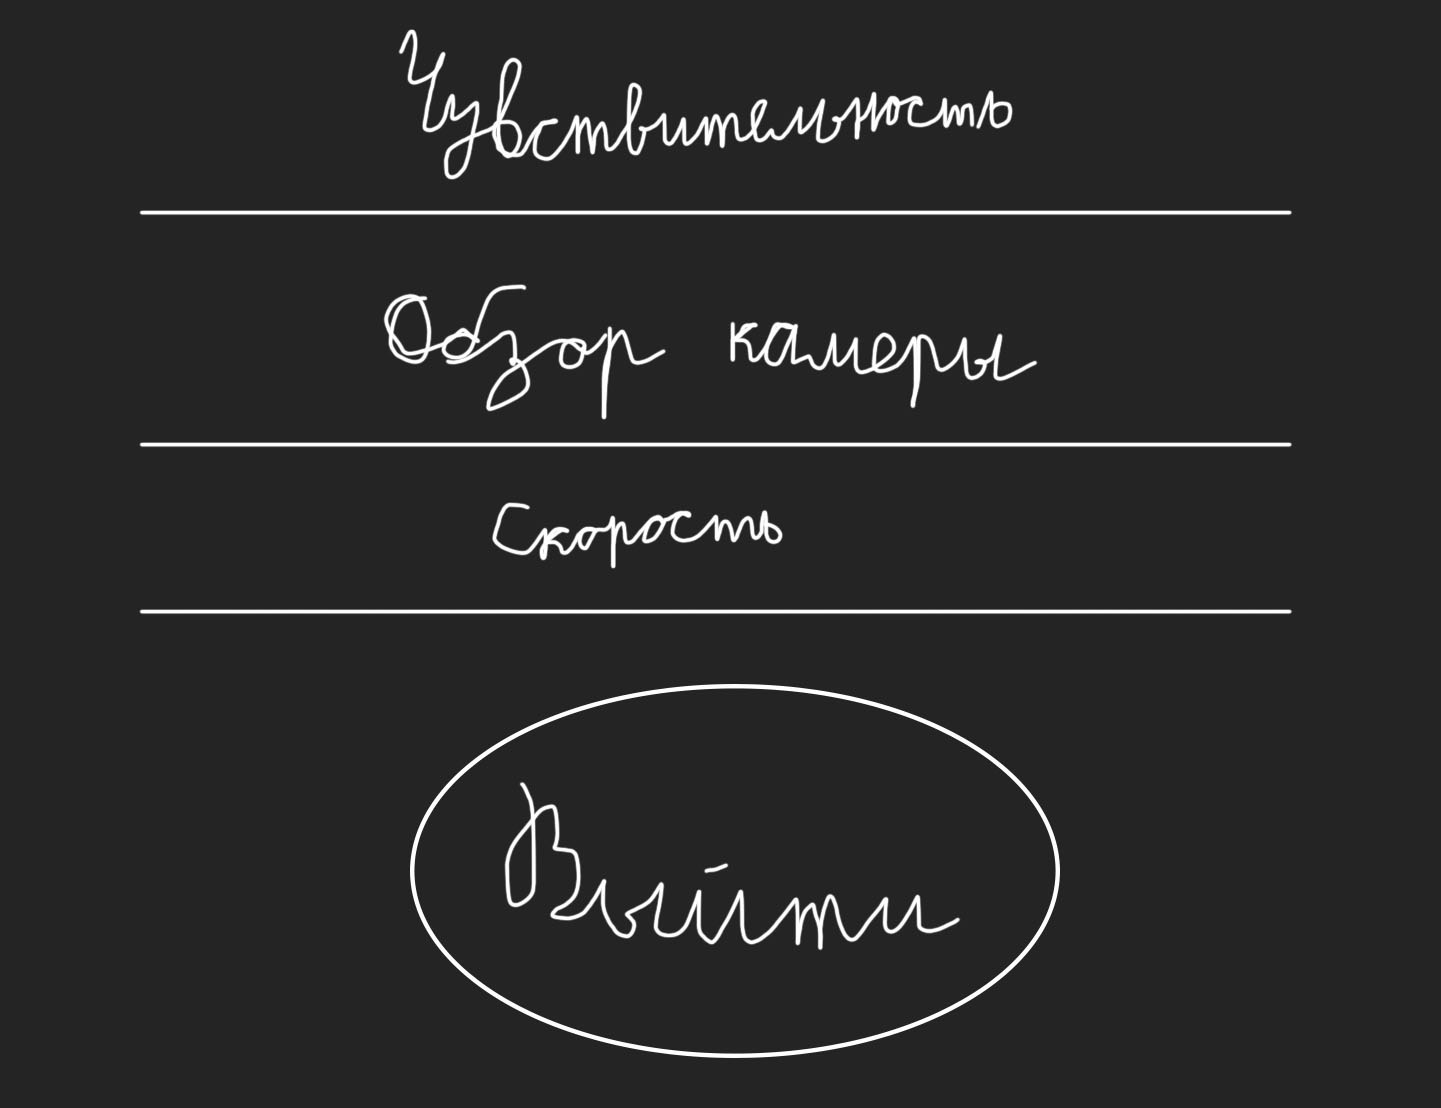 Чувствительность
Обзор камеры
Скорость
Выйти